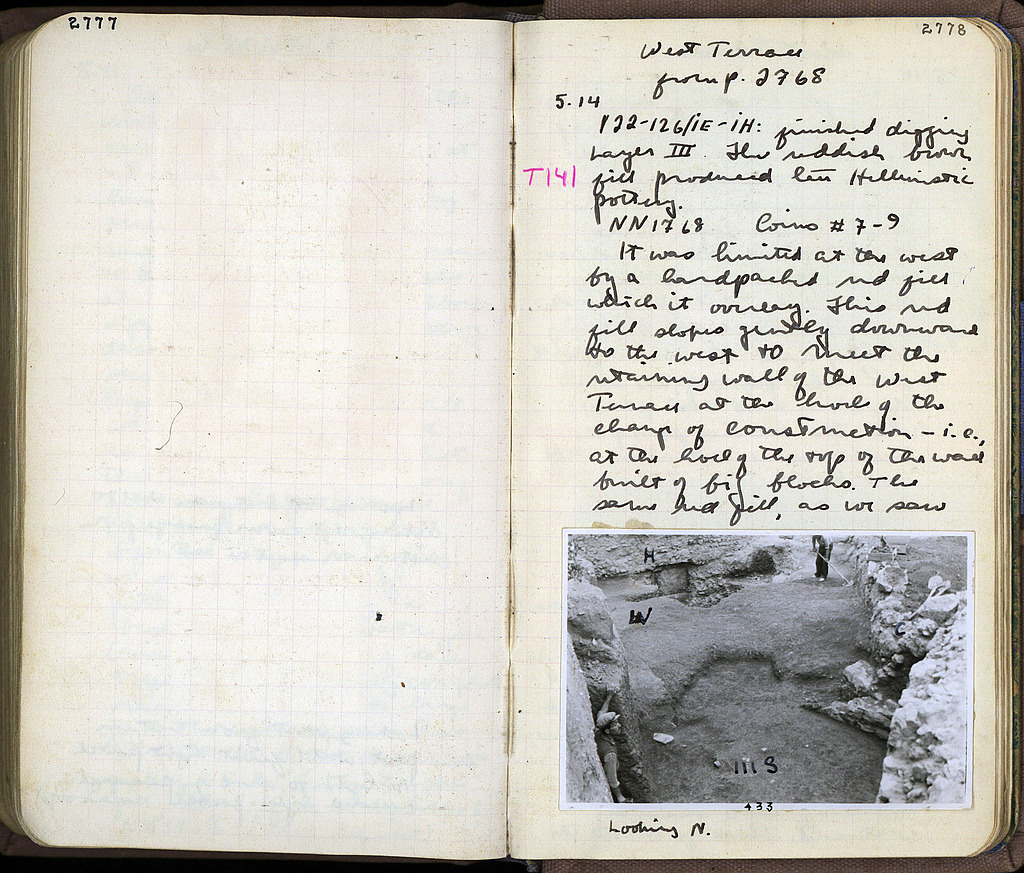 2777
2778
West Terrace
from p. 2768
5.14
122-126/iE-iH: finished digging
Layer III. The reddish brown
T141
fill produced late Hellenistic
pottery.
NN1768 Coins # 7-9
It was limited at the west
by a hardpacked red fill
which it overlay. This red
fill slopes gently downward
to the west to meet the
retaining wall of the West
Terrace at the level of the
change of construction – i.e.,
at the level of the top of the wall
built of big blocks. The
same red fill, as we saw
H
W
C
III S
433
Looking N.